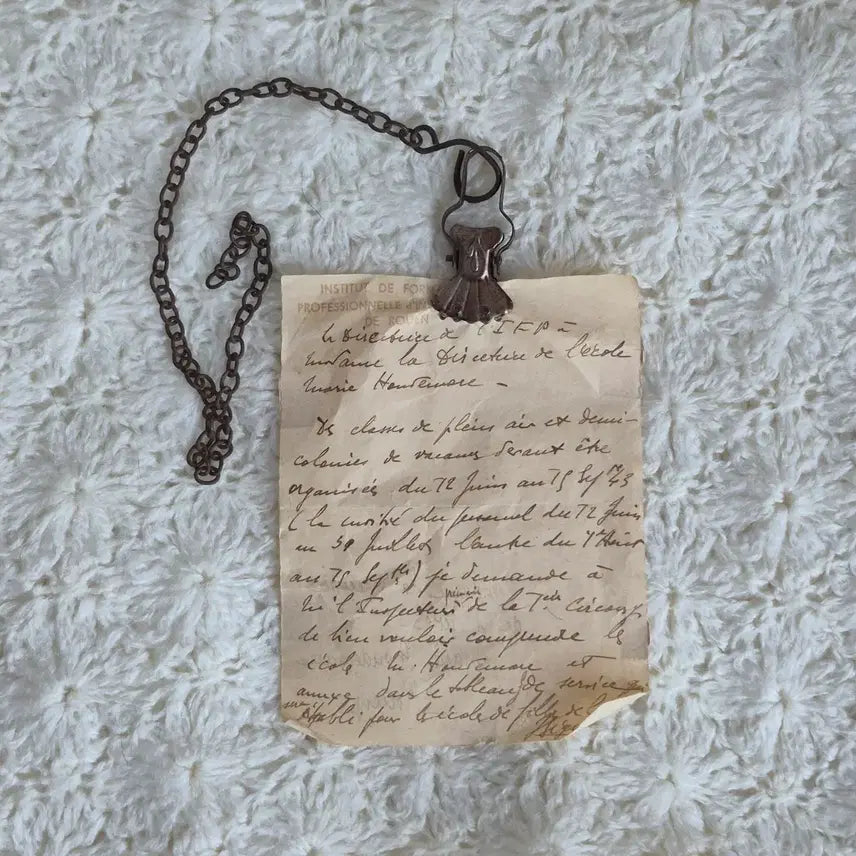 INSTITUT DE FOR
PROFESSIONNELLE
DE ROUEN
la Directrice de l'I F P à
Madame la Directrice de l'école
Marie Houdemare -
Des classes de plein air et demi-
colonies de vacances devant être
organisées du 12 Juin au 15 Sept 43
(la moitié du personnel du 12 Juin
au 31 Juillet, l'autre du 1er Août
au 15 Sept) je demande à
M. l'Inspecteur primaire de la 1ère Circons
de bien vouloir comprendre les
école M. Houdemare et
annexe dans le tableau de service
établi pour les école de filles de